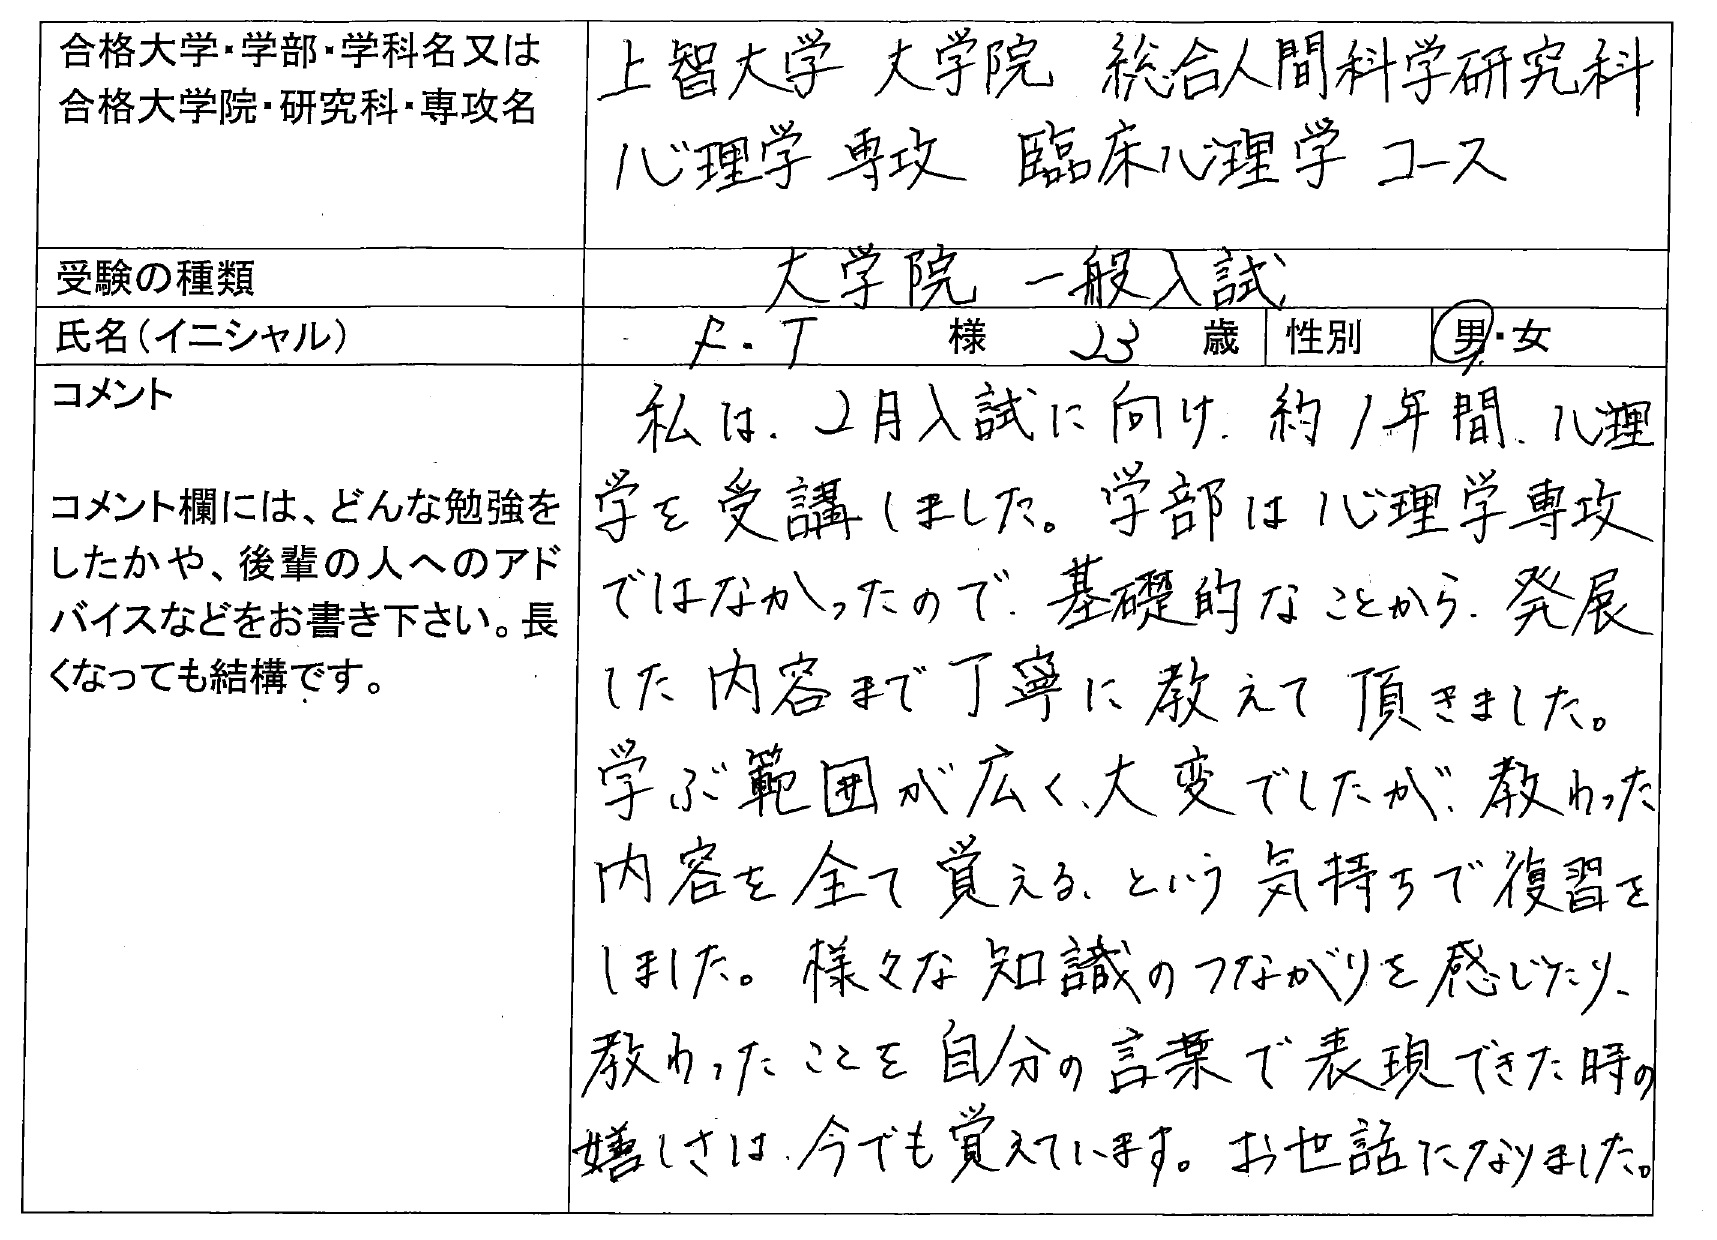 合格大学・学部・学科名又は
合格大学院・研究科・専攻名
上智大学 大学院 総合人間科学研究科
心理学専攻 臨床心理学コース
受験の種類
大学院 一般入試
氏名(イニシャル)
F.T 様 23 歳 性別 男・女
コメント
コメント欄には、どんな勉強を
したかや、後輩の人へのアド
バイスなどをお書き下さい。長
くなっても結構です。
私は、2月入試に向け、約1年間、心理
学を受講しました。学部は心理学専攻
ではなかったので、基礎的なことから、発展
した内容まで丁寧に教えて頂きました。
学ぶ範囲が広く、大変でしたが、教わった
内容を全て覚える、という気持ちで復習を
しました。様々な知識のつながりを感じたり、
教わったことを自分の言葉で表現できた時の
嬉しさは、今でも覚えています。お世話になりました。